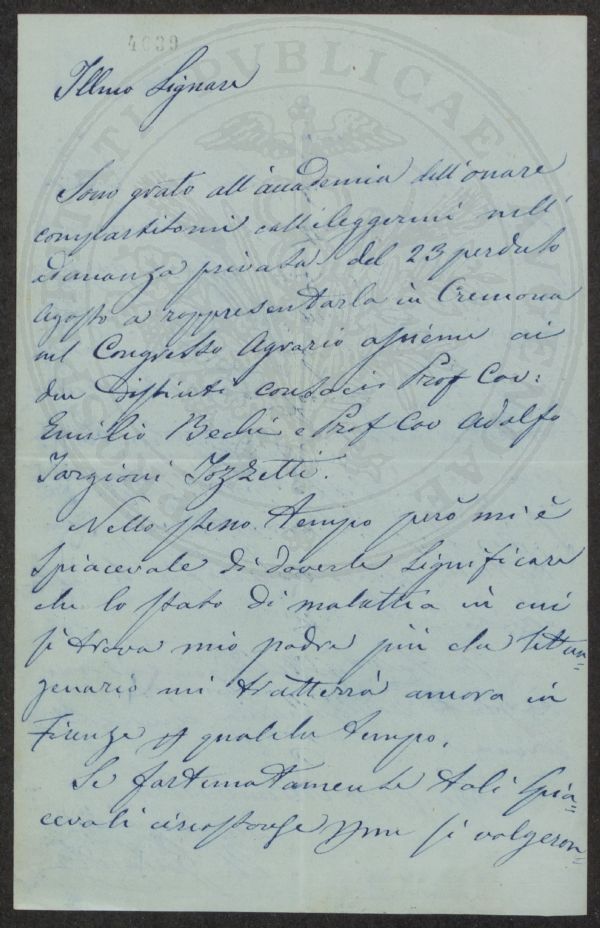 4639
Illmo Signore
Sono grato all'accademia dell'onore
compartitomi coll'eleggermi nell'
adunanza privata del 23 perduto
Agosto a rappresentarla in Cremona
nel Congresso Agrario assieme ai
due distinti consocii Prof Cav:
Emilio Bechi e Prof Cav Adolfo
Targioni Tozzetti.
Nello stesso tempo però mi è
spiacevole di doverle significare
che lo stato di malattia in cui
si trova mio padre più che settua=
genario mi tratterrà ancora in
Firenze qualche tempo.
Se fortunatamente tali spia=
cevoli circostanze si volgeran=
PROSPERITATI PUBLICAE AUGENDAE